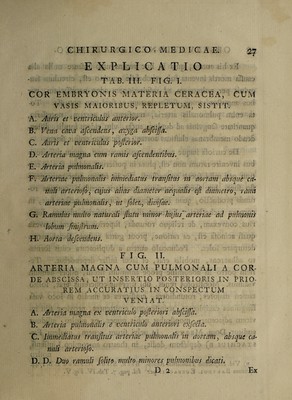 CHIRURGICO-MEDICAE. 27
EXPLICATIO
TAB. III. FIG. I.
COR EMBRYONIS MATERIA CERACEA, CUM
VASIS MAIORIBUS, REPLETUM, SISTIT.
A. Auris et ventriculus anterior.
B. Vena cava ascendens, azyga abscissa.
C. Auris et ventriculus posterior.
D. Arteria magna cum ramis ascendentibus.
E. Arteria pulmonalis.
F. Arteriae pulmonalis immediatus transitus in aortam absque ca-
nali arterioso, cujus alias diameter aequalis est diametro, trunci
arteriae pulmonalis, ut solet, dicisae.
G. Ramulus multo naturali statu minor hujus arteriae ad pulmonis
lobum sinistrum.
H. Aorta descendens.
FIG. II.
ARTERIA MAGNA CUM PULMONALI A COR-
DE ABSCISSA, UT INSERTIO POSTERIORIS IN PRIO-
REM ACCURATIUS IN CONSPECTUM
VENIAT.
A. Arteria magna ex ventriculo posteriori abscissa.
B. Arteria pulmonalis e ventriculo anteriori excissa.
C. Immediatus transitus arteriae pulmonalis in aortam, absque ca-
nali arterioso.
D. D. Duo ramuli solito multo minores pulmonibus dicati.
D 2 Ex